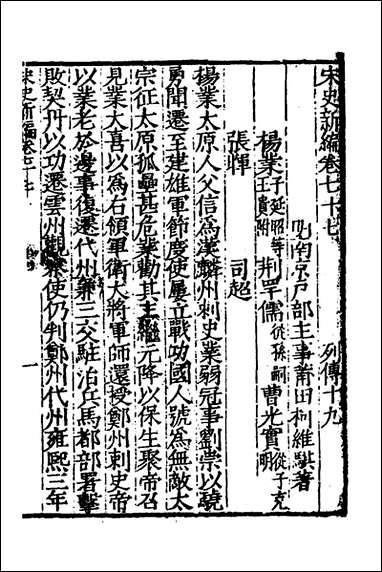 宋史新編卷七十七 列傳十九
明南京戶部主事莆田柯維騏著
楊業子延昭等 王貴附 荆罕儒從孫嗣 曹光實從子克明
張暉 司超
楊業太原人父信為漢麟州刺史業弱冠事劉崇以驍
勇聞遷至建雄軍節度使屢立戰功國人號為無敵太
宗征太原孤壘甚危業勸其主繼元降以保生聚帝召
見業大喜以為右領軍衛大將軍師還授鄭州刺史帝
以業老於邊事復遷代州兼三交駐泊兵馬都部署擊
敗契丹以功遷雲州觀察使仍判鄭州代州雍熙三年
宋史新編卷七十七
一